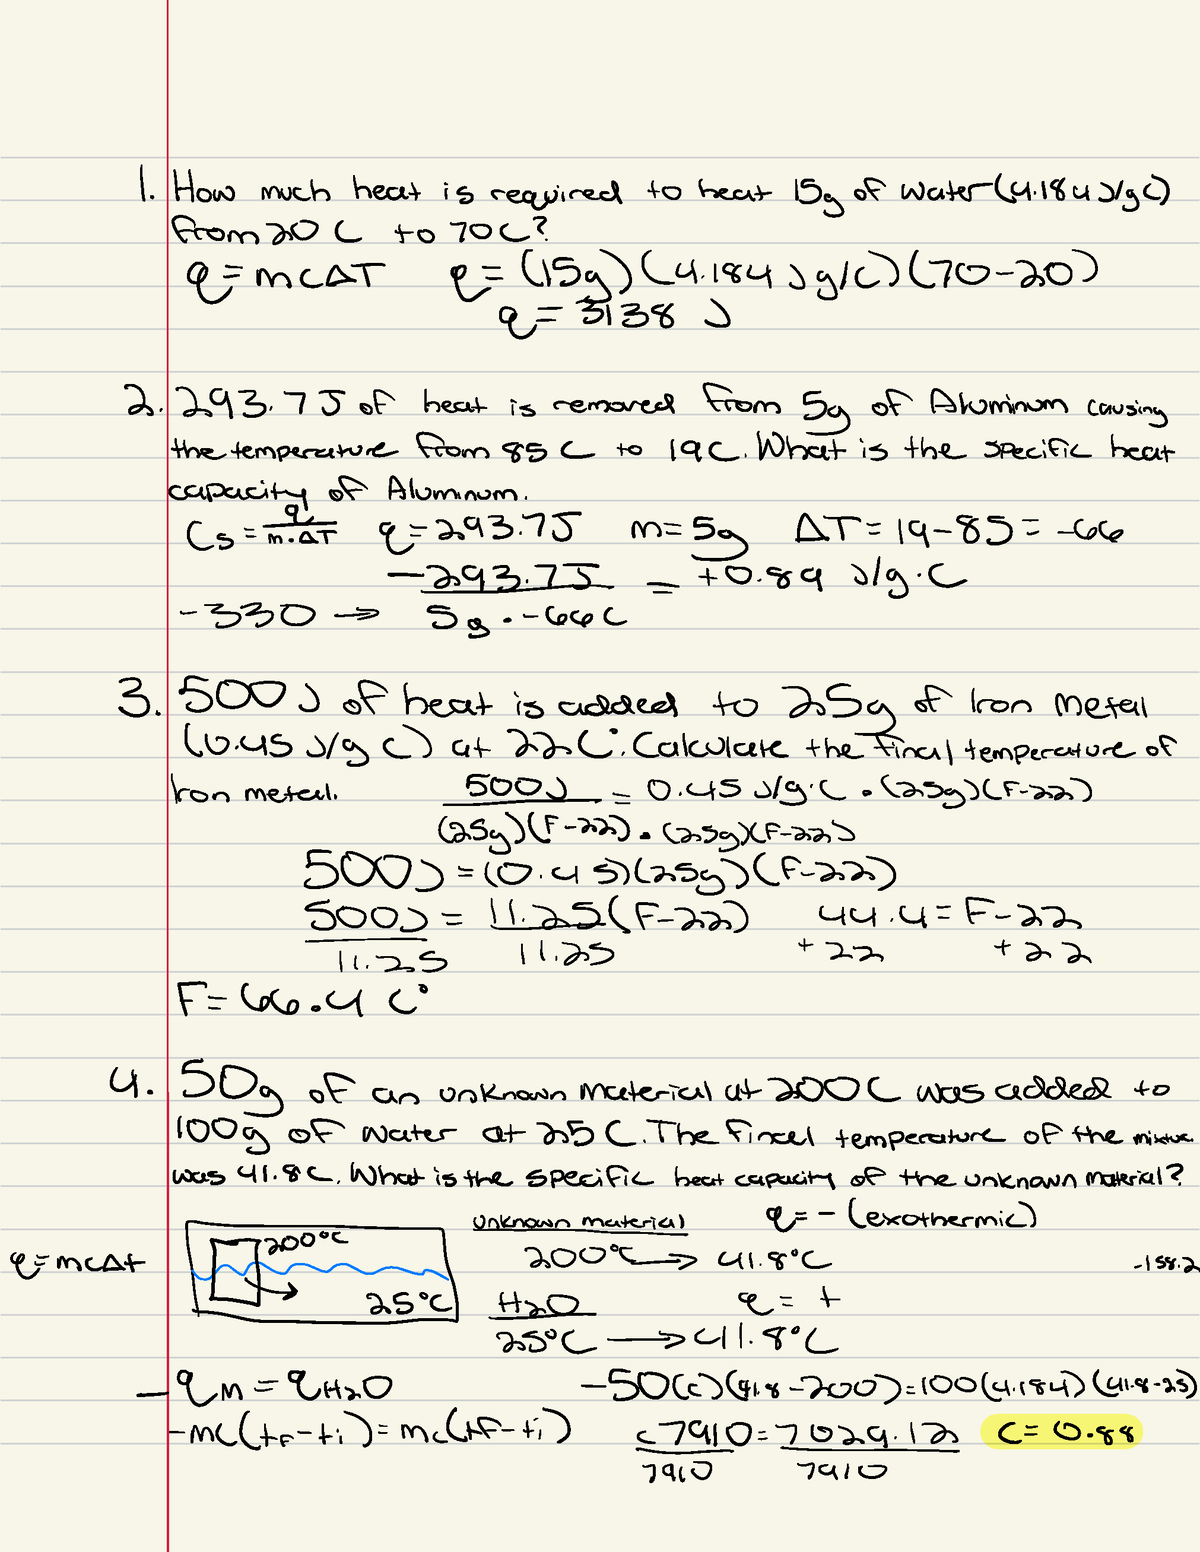 1. How much heat is required to heat 15g of water (4.184 J/g C)
from 20 C to 70C?
q = mcΔT q = (15g)(4.184 J g/C)(70-20)
q = 3138 J
2. 293.7 J of heat is removed from 5g of Aluminum causing
the temperature from 85 C to 19C. What is the specific heat
capacity of Aluminum.
Cs = q/m·ΔT q = 293.7J m = 5g ΔT = 19-85 = -66
-293.7J = +0.89 J/g·C
-330 → 5g · -66C
3. 500 J of heat is added to 25g of Iron metal
(0.45 J/g C) at 22 C°. Calculate the final temperature of
Iron metal. 500J = 0.45 J/g·C · (25g)(F-22)
(25g)(F-22) · (25g)(F-22)
500J = (0.45)(25g)(F-22)
500J = 11.25(F-22) 44.4 = F-22
11.25 11.25 +22 +22
F = 66.4 C°
4. 50g of an unknown material at 200C was added to
100g of water at 25 C. The final temperature of the mixture
was 41.8C. What is the specific heat capacity of the unknown material?
unknown material q = - (exothermic)
q = mcΔt 200°C 200°C → 41.8°C -158.2
25°C H2O q = +
25°C → 41.8°C
-qM = qH2O -50(c)(41.8-200) = 100(4.184)(41.8-25)
-mc(tF-ti) = mc(tF-ti) c7910 = 7029.12 C = 0.88
7910 7910